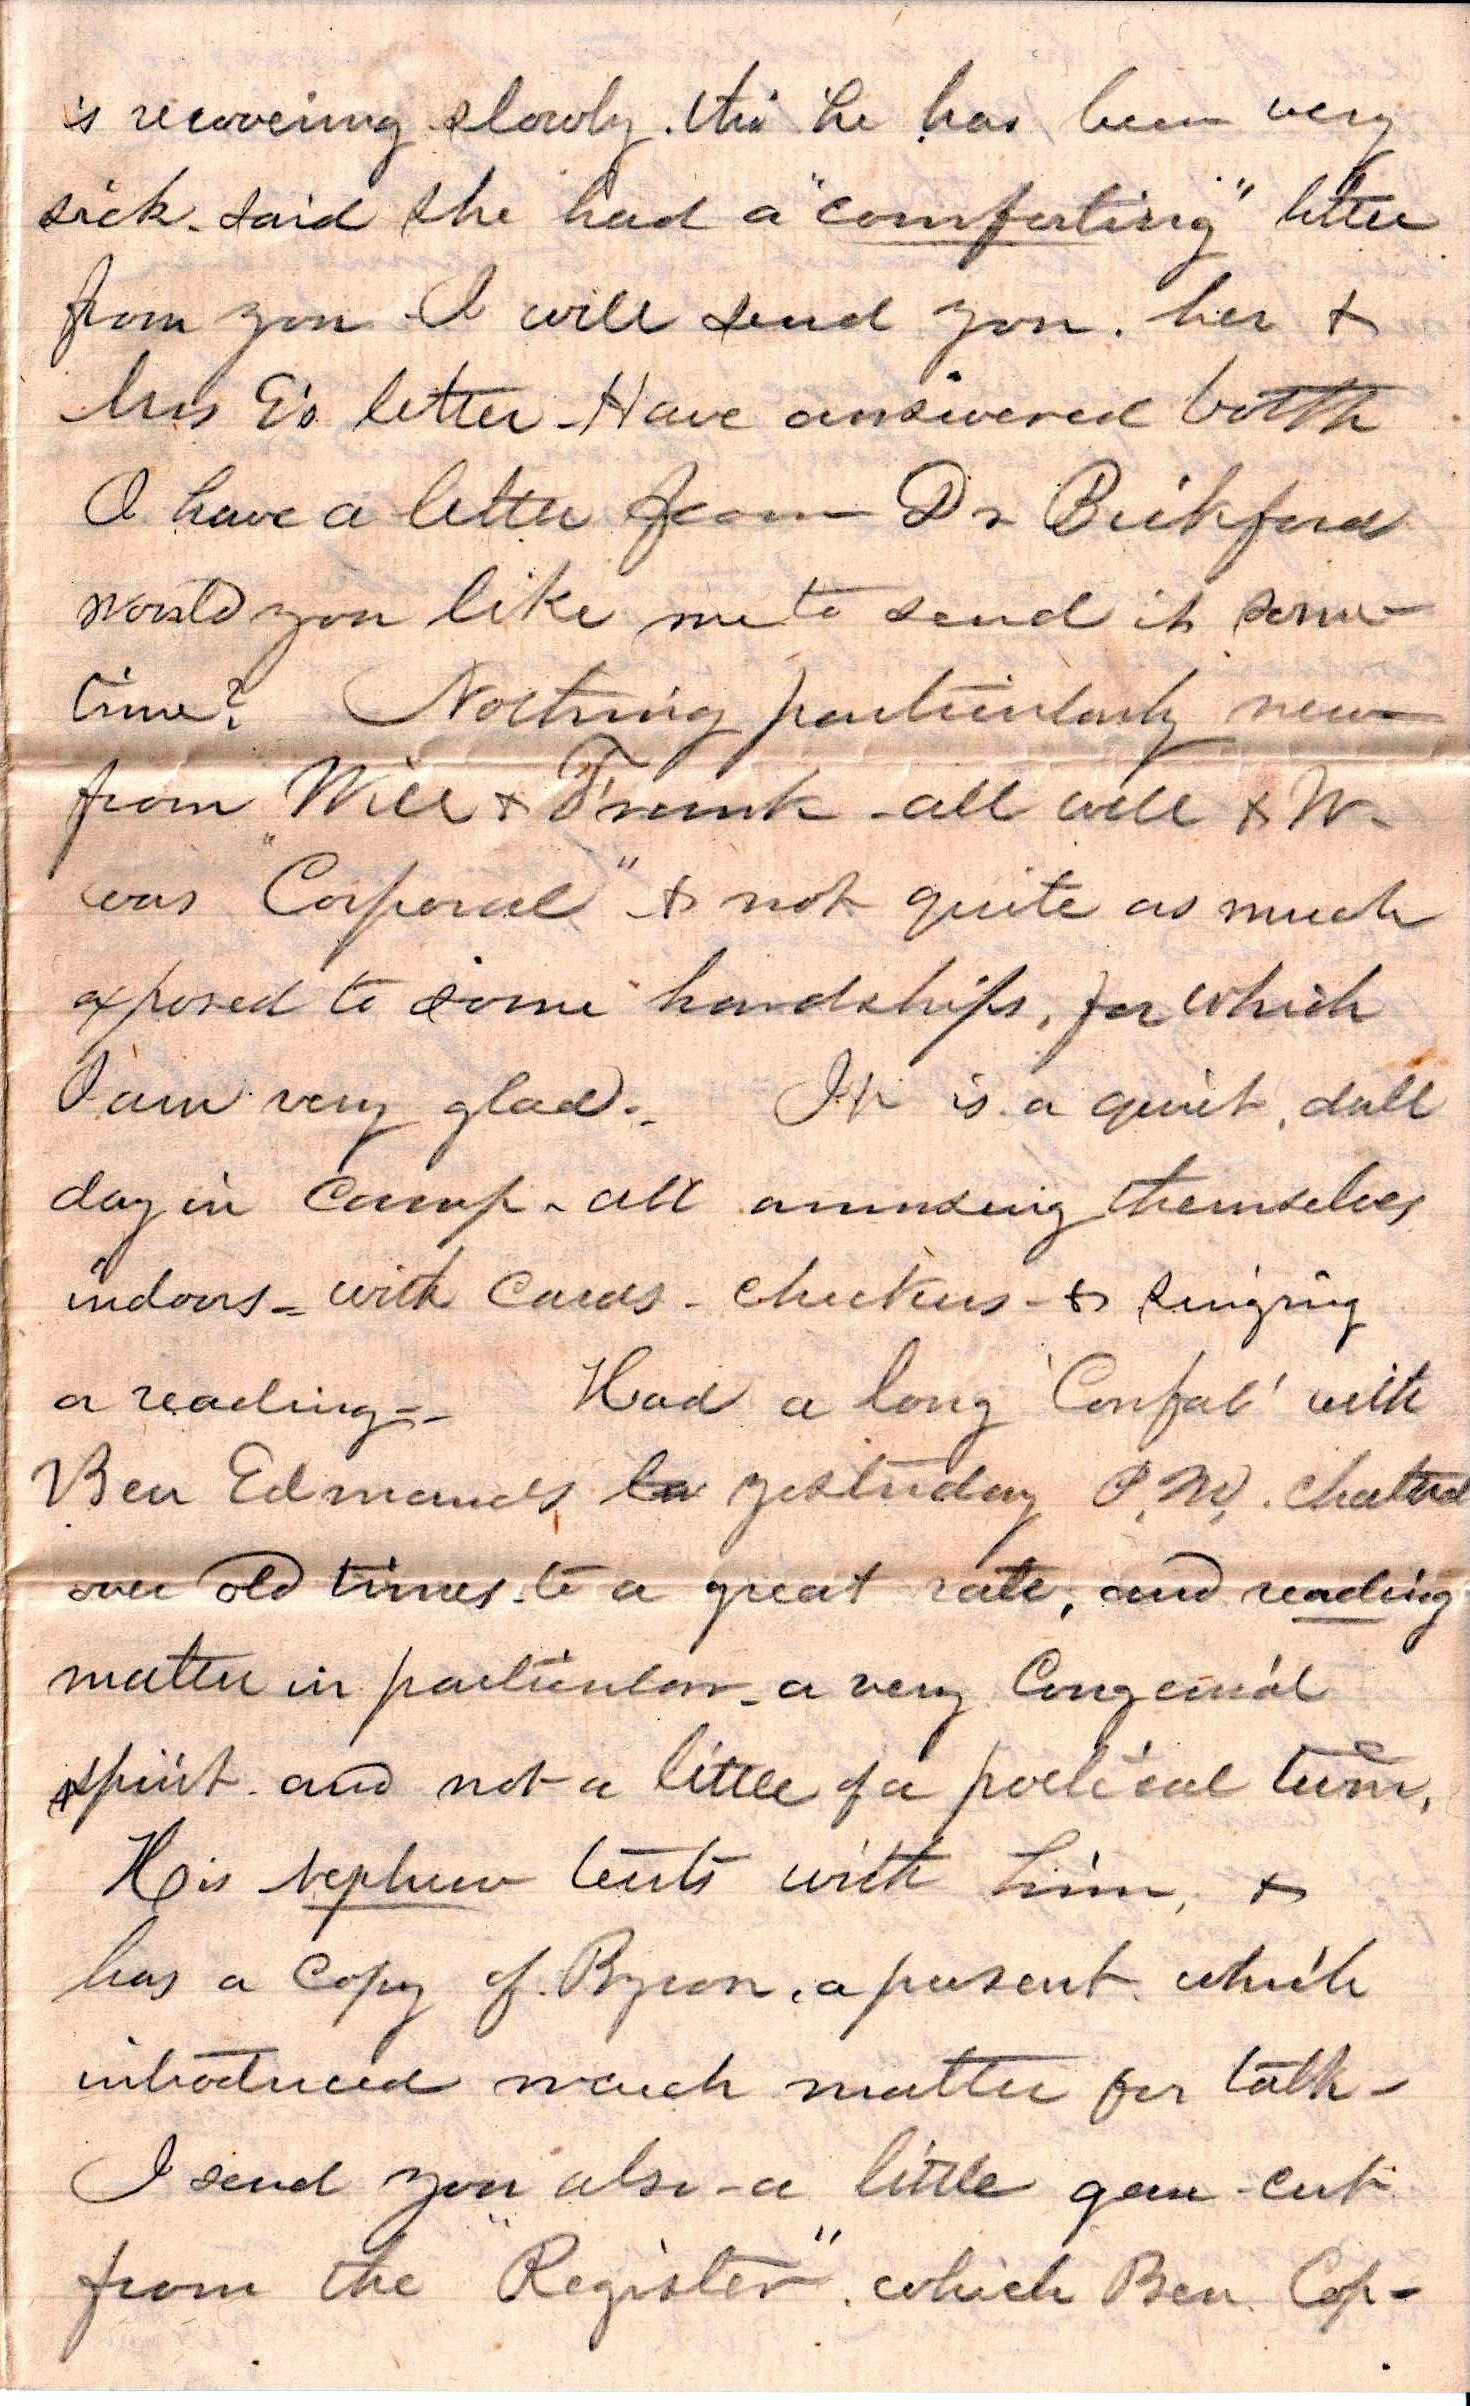 is recoveing slowly. tho' he has been very
sick. said she had a "comforting" letter
from you - I will send you. her &
Mrs E's letter - Have answered both
I have a letter from Dr Bickford
would you like me to send it some-
time? Nothing particularly new
from Will & Frank - all well & W.
was "Corporal" & not quite as much
exposed to some hardships, for which
I am very glad. - It is a quiet, dull
day in Camp - all amusing themselves
indoors - with cards - checkers - & singing
or reading - - Had a long 'Confab' with
Ben Edmands yesterday P.M. chatted
over old times - to a great rate, and reading
matter in particular - a very Congenial
spirit and not a little of a poetical turn.
His Nephew tents with him, &
has a copy of Byron, a present which
introduced much matter for talk -
I send you also - a little gem - cut
from the "Register". which Ben Cop-